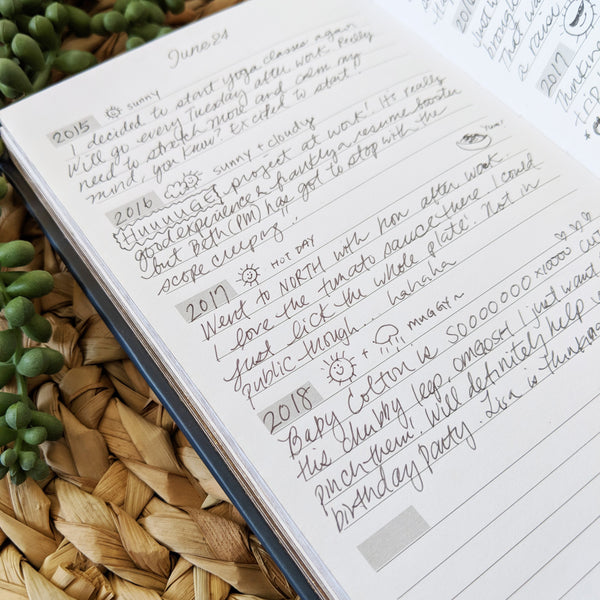 June 21
2015 sunny
I decided to start yoga classes again.
Will go every Tuesday after work. Really
need to stretch more and calm my
mind, you know? Excited to start!
2016 sunny + cloudy
HUUUUGE project at work! It's really
good experience & frankly a resume booster
but Beth (PM) has got to stop with the
scope creeping!!
Yum!
2017 HOT DAY
Went to NORTH with Ron after work.
I love the tomato sauce there. I could
just lick the whole plate! Not in
public though... hahaha
2018 + muggy
Baby Colton is 50000000 x 10000 cute
His chubby legs, OMGOSH I just want to
pinch them! Will definitely help
birthday party. Lisa is thinking
2016
just w
brough
That wa
a raise
2017
Thinking
trip